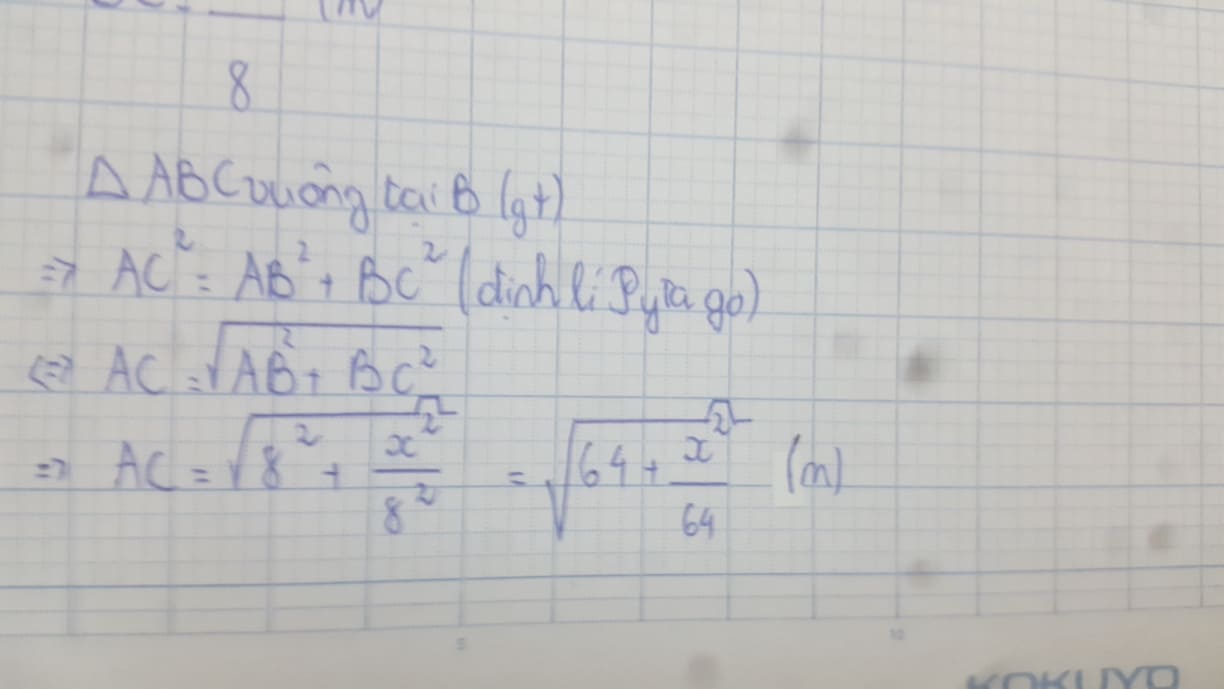 (m)
8
Δ ABC vuông tại B (gt)
=> AC² = AB² + BC² (định lí Pytago)
<=> AC = √(AB² + BC²)
=> AC = √(8² + x²/8²) = √(64 + x²/64) (m)
5 10
KOKUYO